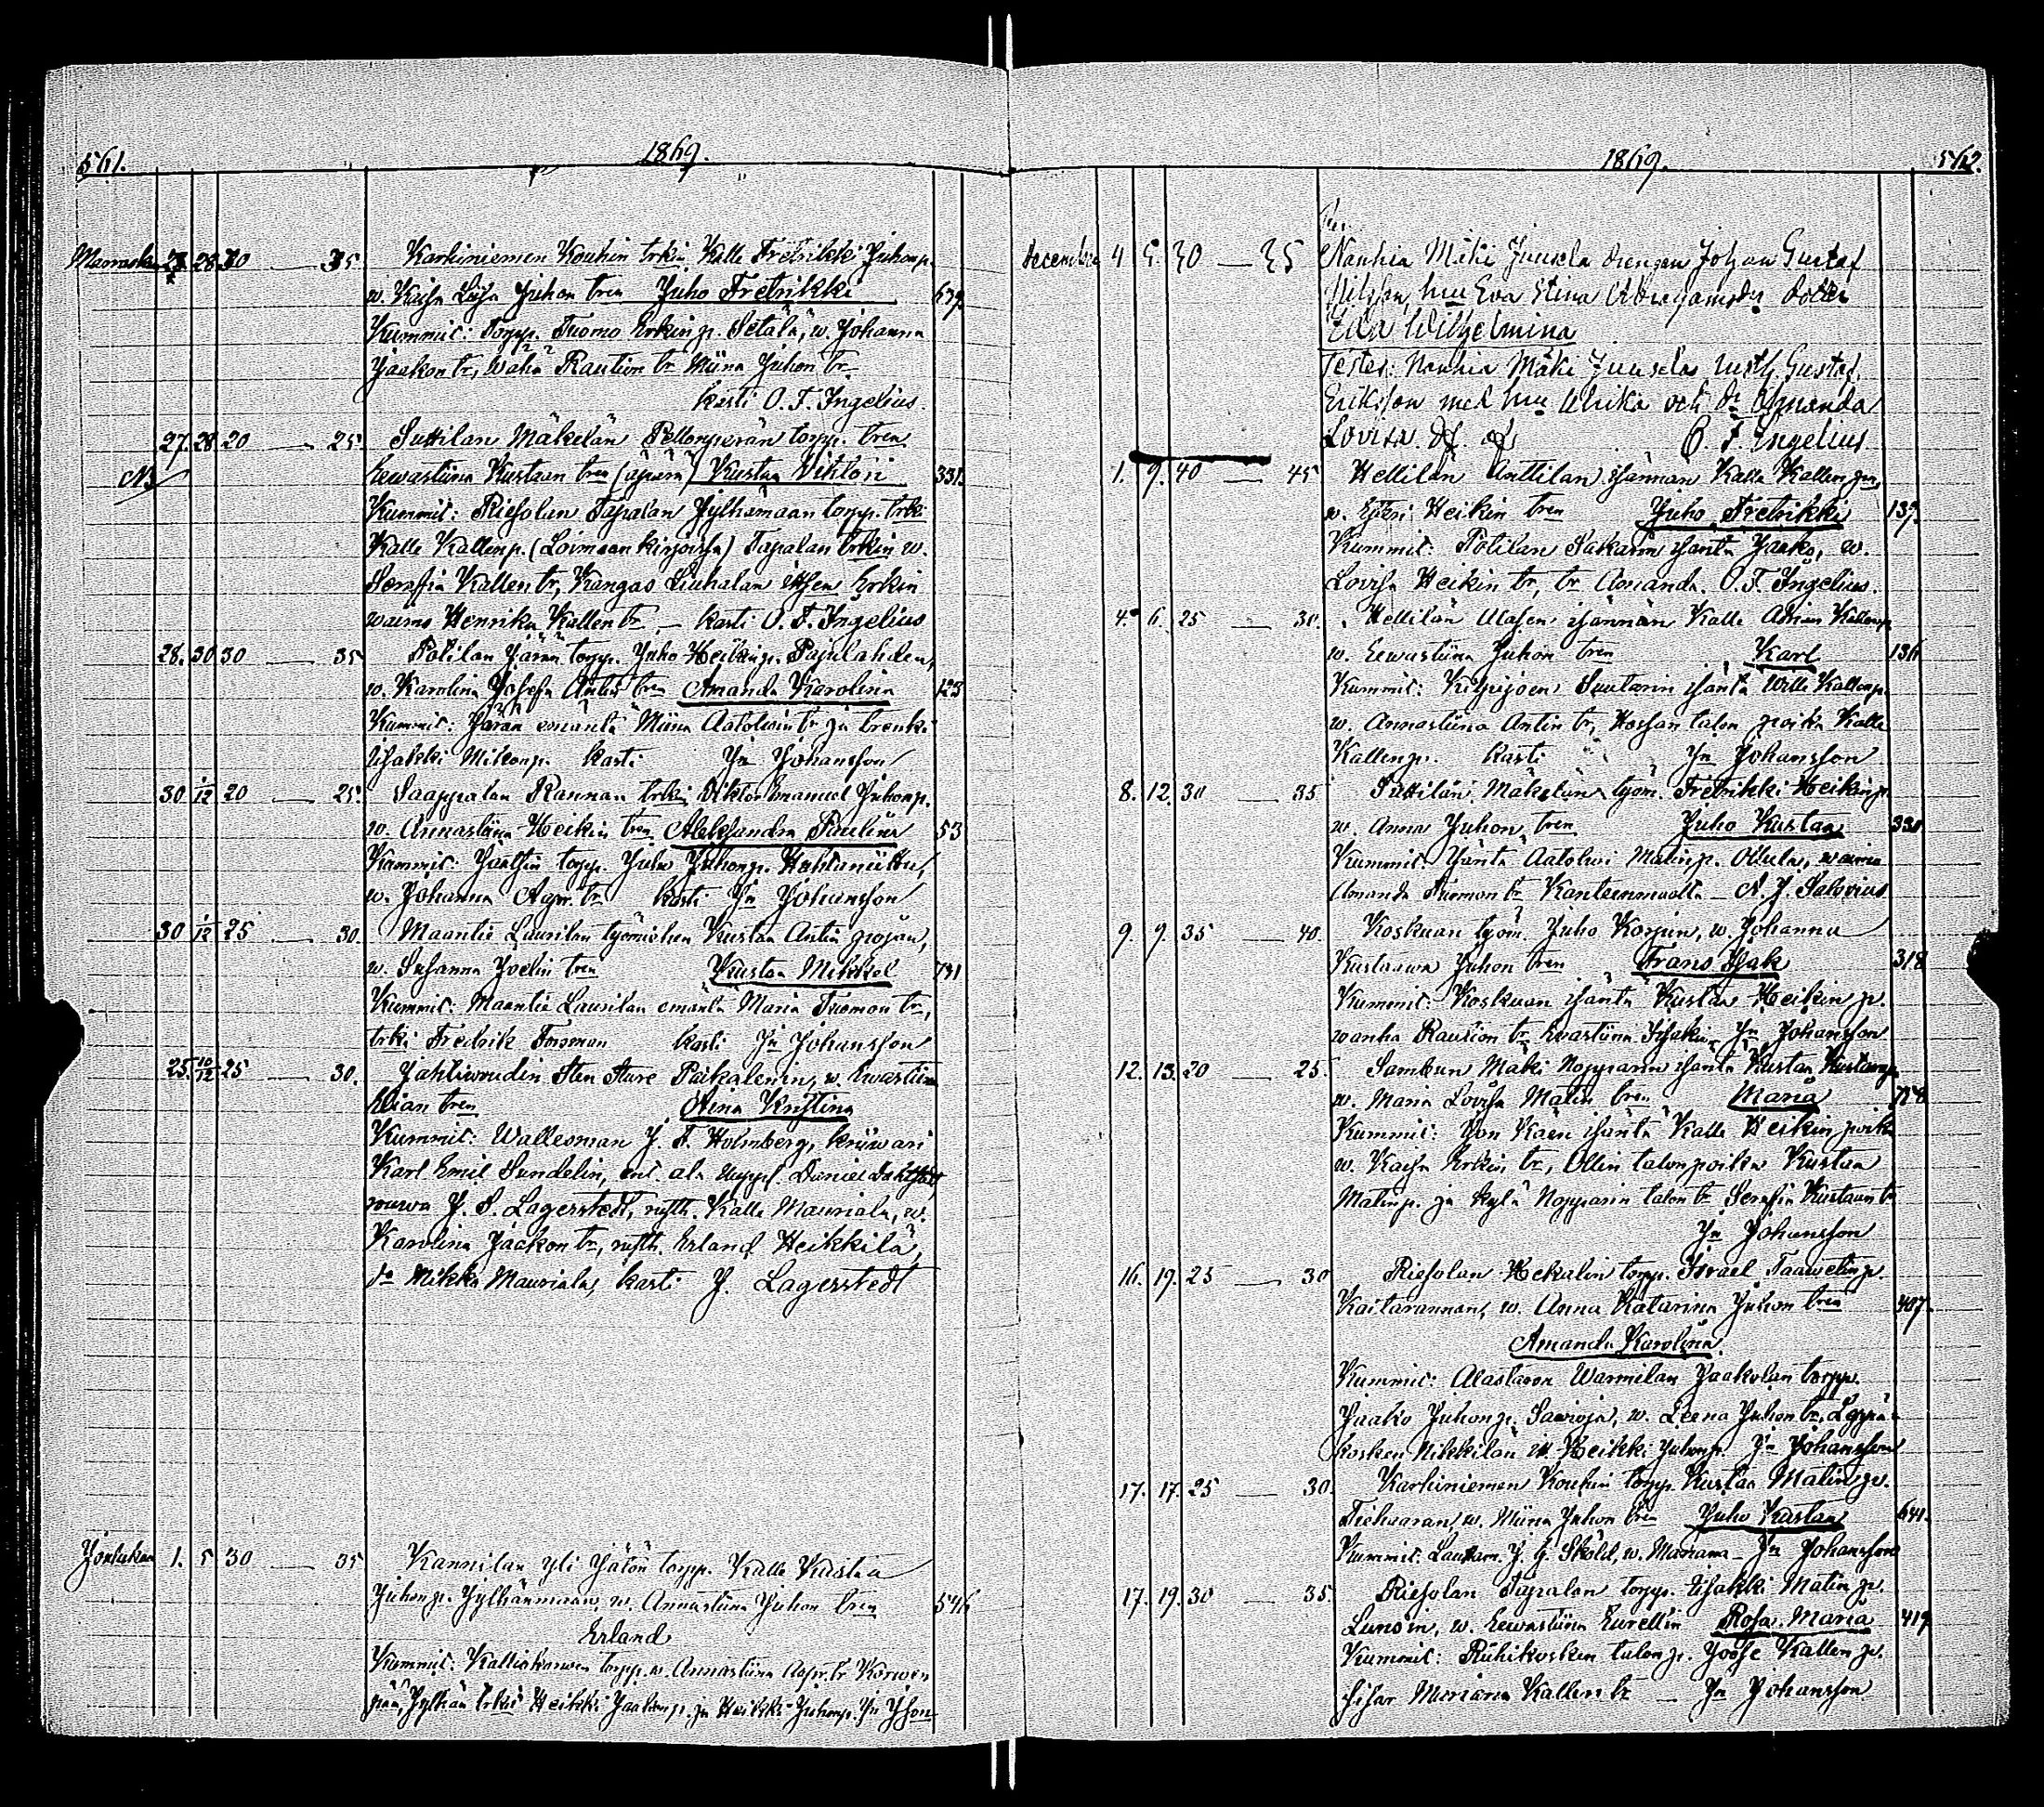 561. 1869.
Marrask. 28 30 — 35. Karhiniemen Kouhin trki Kalle Fretrikki Juhonp.
w. Kaisa Liisa Juhon tren Juho Fretrikki 639
Kummit: Torpp. Tuomo Erkin p. Setälä, w. Johanna
Jaakon tr, Waha Raution tr Miina Juhon tr.
kasti O. F. Ingelius.
27. 28 20 — 25 Suttilan Mäkelän Pellonperän torpp. tren
N
Eewastiina Kustaan tren (äpärä) Kustaa Wihtori 331
Kummit: Riesolan Tapalan Jylhämaan torpp. trki
Kalle Kallenp. (Loimaan kirjoissa) Tapalan trkin w.
Serafia Kallen tr, Kangas Liuhalan itsen Erkin
waimo Henrika Kallen tr — kasti O. F. Ingelius
28. 30 30 — 35 Potilan Järän torpp. Juho Heikin p. Pajulahden,
w. Karolina Josefa Antin tren Amanda Karolina 123
Kummit: Järän emäntä Miina Aatolwin tr ja trenki
Iisakki Mikonp. kasti Jn Johansson
30. 1/12 20 — 25. Saappalan Rannan trki Viktor Emanuel Juhonp.
w. Annastiina Heikin tren Aleksandra Pauliina 53
Kummit: torpp. Juho Juhonp. Huhtaniittu,
w. Johanna Apr. tr kasti Jn Johansson
30 1/12 25 — 30. Maantie Laurilan työmiehen Kustaa Antin pojan,
w. Susanna Joelin tren Kustaa Mikkel 731
Kummit: Maantie Laurilan emäntä Maria Tuomon tr,
trki Fredrik Forsman kasti Jn Johansson
25. 10/12 25 — 30. Jahtiwoudin Sten Sture Paikalenin, w. Ewastiina
Elian tren Aina Kristina
Kummit: Wallesman J. F. Holmberg, kriiwari
Karl Emil Sundelin, ent. ala upps. Daniel
rouwa J. S. Lagerstedt, rusth. Kalle Mauriala, w.
Karolina Jaakon tr, rusth. Erland Heikkilä,
do Mikko Mauriala, kasti J. Lagerstedt
Joulukuu 1. 5 30 — 35 Kannilan yli Jätön torpp. Kalle Kustaa
Juhonp. Jylhänmaan, w. Annastiina Juhon tren 546
Erland
Kummit: torpp. w. Annastiina Apr. tr
Jylhän trkit Heikki Jaakonp. ja Heikki Juhonp. Jn Json
1869. 562.
December 4 5. 30 — 35 Nanhia Mäki Juusela drengen Johan Gustaf
Nilsson, hu Eva Stina Abrahamsdr dotter
Eda Wilhelmina
Testes: Nanhia Mäki Juuselas rusth. Gustaf
Eriksson med hu Ulrika och dr Amanda
Lovisa. O. F. Ingelius
1. 9. 40 — 45 Hellilän Anttilan isännän Kalle Kallen pn,
w. Esteri Heikin tren Juho Fretrikki 137.
Kummit: Potilan Sakarin isäntä Jaako, w.
Lovisa Heikin tr, tr Amanda. O. F. Ingelius.
4. 6. 25 — 30. Hellilän Alasen isännän Kalle Adrian Kallenp
w. Eewastiina Juhon tren Karl 136
Kummit: Kilpijoen Suutarin isäntä Wille Kallenp.
w. Annastiina Antin tr, Hossan talon poika Kalle
Kallenp. kasti Jn Johansson
8. 12. 30 — 35 Suttilan Mäkelän työm. Fretrikki Heikinp
w. Anna Juhon tren Juho Kustaa 330
Kummit: Isäntä Aatolwi Matinp. Ollula, waimo
Amanda Tuomon tr Kanteenmaalta — A. J. Salovius
9. 9. 35 — 40. Koskuan työm. Juho Korpin, w. Johanna
Kustaawa Juhon tren Frans Isak 318
Kummit: Koskuan isäntä Kustaa Heikin p.
wanha Raution tr Ewastiina Iisakin Jn Johansson
12. 13. 20 — 25. Sambun Mäki Nopparin isäntä Kustaa Kustaanp
w. Maria Lovisa Matin tren Maria 758
Kummit: isäntä Kalle Heikin poika
w. Kaisa Erkin tr, Ollin talonpoika Kustaa
Matinp. ja Kylä Nopparin talon tr Serafia Kustaan tr
Jn Johansson
16. 19. 25 — 30 Riesolan Hekalin torpp. Israel Taawetinp.
Kaitarannan, w. Anna Katarina Juhon tren 407.
Amanda Karolina
Kummit: Alastaron Warmilan Jaakolan torpp.
Jaako Juhonp. Sawioja, w. Leena Juhon tr,
kosken Nikkilän Heikki Juhonp. Jn Johansson
17. 17. 25 — 30. Karhiniemen Kouhin torpp. Kustaa Matinp.
Tiehaaran, w. Miina Juhon tren Juho Kustaa 641.
Kummit: Lautam. J. G. Sköld, w. Mariana — Jn Johansson
17. 19. 30 — 35. Riesolan Tapalan torpp. Iisakki Matin p.
Lunsin, w. Eewastiina Eurellin Rosa Maria 419
Kummit: Riihikosken talonp. Joose Kallen p.
sisar Mariana Kallen tr — Jn Johansson